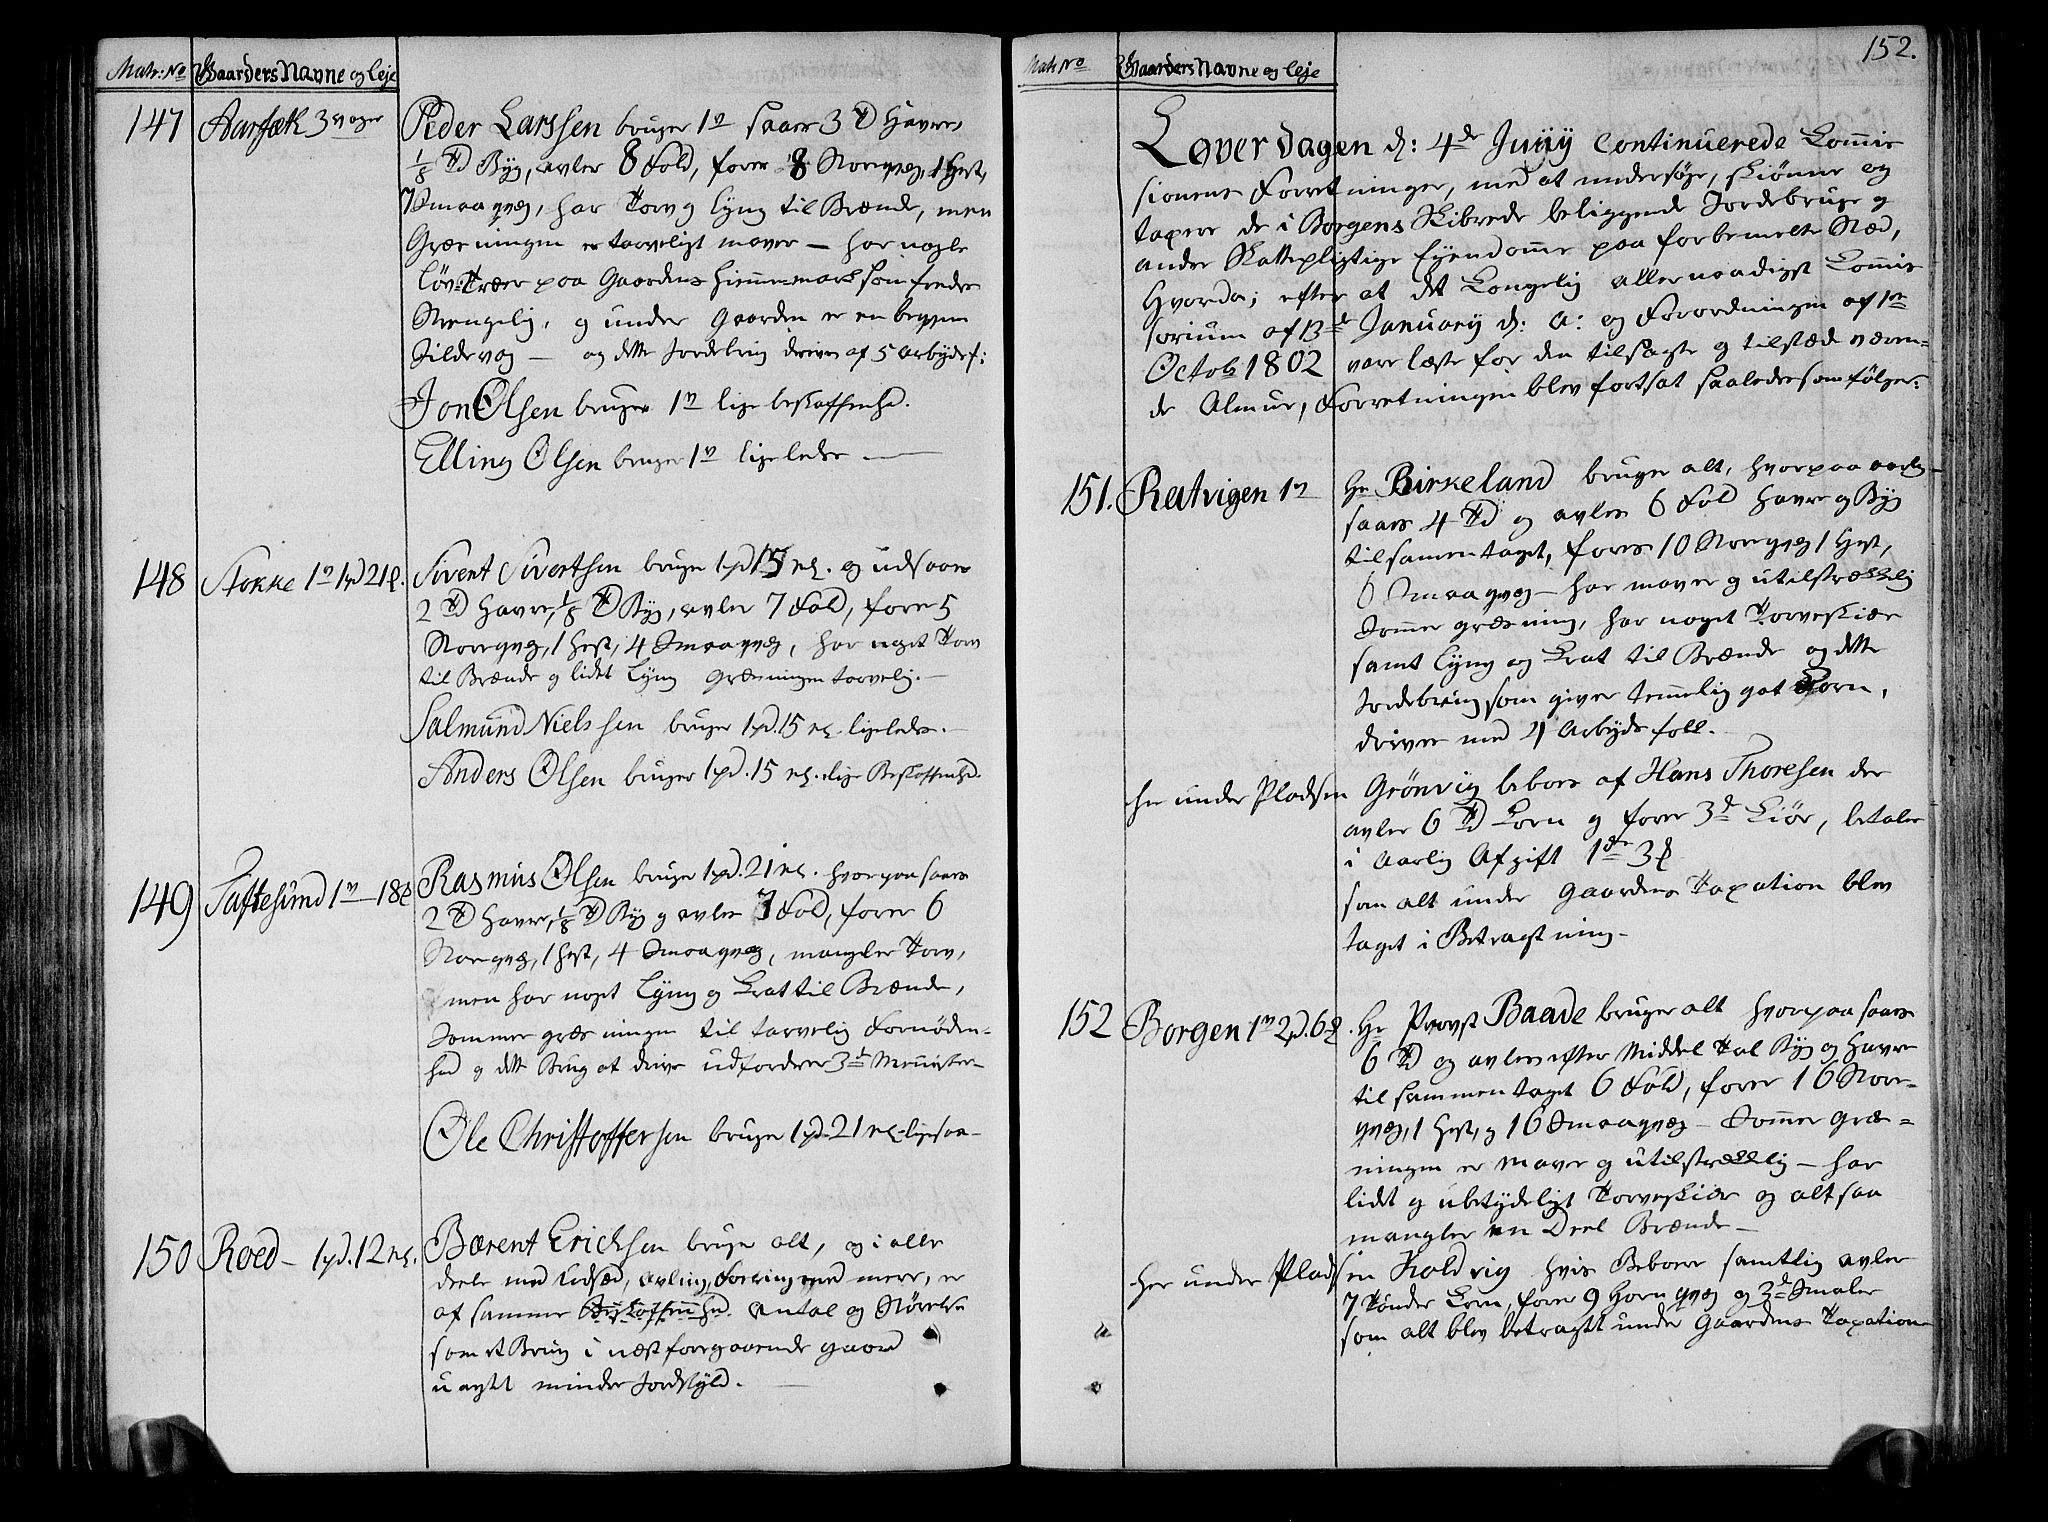 Matr: No Gaarders Navne og leje
147 Aarsæk 3 voger Peder Larssen bruger 1 v saaer 3 Td Havre,
1/8 Td Byg, avler 8 Fold, foder 8 Storqvæg, 1 Hest,
7 Smaaqvæg, har Torv og Lyng til Brænde, men
Græsningen er tarveligt mager – har nogle
løv-Træer paa Gaardens Hiemmemark som fredes
Strengelig, og under Gaarden er en beqvem
Sildevog – og dette Jordebrug drives af 5 arbejdsf:
Jon Olsen bruger 1 v lige beskaffenhed.
Elling Olsen bruger 1 v ligeledes
148 Stokke 1 v 1 pd 21 Sivert Sivertsen bruger 1 pd 15 mk. og udsaaer
2 Td Havre, 1/8 Td Byg, avler 7 Fold, foder 5
Storqvæg, 1 Hest, 4 Smaaqvæg, har noget Torv
til Brænde og lidet Lyng Græsningen tarvelig.
Salmund Nielssen bruger 1 pd. 15 mk. ligeledes.
Anders Olsen bruger 1 pd. 15 mk. lige Beskaffenhed.
149 Taftesund 1 v 18 Rasmus Olsen bruger 1 pd. 21 mk. hvorpaa saaes
2 Td Havre, 1/8 Td Byg og avler 7 Fold, foder 6
Storqvæg, 1 Hest, 4 Smaaqvæg, mangler Torv,
men har noget Lyng og Krat til Brænde,
Sommergræsningen til tarvelig Fornøden-
hed og dette Brug at drive udfordrer 3de Mennister
Ole Christoffersen bruger 1 pd. 21 mk. ligesaa
150 Røed – 1 pd. 12 mk. Bærent Ericksen bruger alt, og i alle
deele med Udsæd, avling, Foering med mere, er
af samme Beskaffenhed. Antal og Størelse
som et Brug i næstforegaaende gaard
uagtet mindre Jordskyld.
152.
Matr No Gaarders Navne og leje
Løverdagen d: 4de Juny continuerede Commis
sionens Forretninger, med at undersøge, skiønne og
taxere de i Borgens Skibrede beliggende Jordebruge og
andre Skattepligtige Eyendomme paa forbemelte Sted,
Hvorda; efter at det Kongelig allernaadigst Commis
sorium af 13de January d: a: og Forordningen af 1te
Octob 1802 vare læste for den tilsagte og tilstæde væren-
de Almue, Forretningen blev fortsat saaledes som følger:
151. Ratvigen 1 v Hr Birkeland bruger alt, hvorpaa aarlig
saaes 4 Td og avles 6 Fold Havre og Byg
tilsamentaget, fores 10 Storqvæg 1 Hest,
6 Smaaqvæg – har mager og utilstrækkelig
Sommer græsning, har noget Torveskiær
samt Lyng og Krat til Brænde og dette
Jordebrug som giver temmelig got Korn,
drives med 4 Arbejdsfolk.
Her under Pladsen Grønvig bebøes af Hans Thoresen der
avler 6 Td Korn og foder 3de Kiør, betaler
i Aarlig Afgift 1 dr 3
som alt under Gaardens Taxation blev
taget i Betragtning –
152 Borgen 1 v 2 pd. 6 . Hr Provst Baade bruger alt hvorpaa saaes
6 Td og avles efter Middel Tal Byg og Havre
tilsammentaget 6 Fold, foder 16 Stor-
qvæg, 1 Hest, og 16 Smaaqvæg – Sommer græs-
ningen er mager og utilstrækkelig – har
lidet og ubetydeligt Torveskiær og altsaa
mangler en Deel Brænde –
Her under Pladsen Koldvig hvis Beboere samtlig avler
7 Tønder Korn, foder 9 Hornqvæg og 3de Smaler
som alt blev betragtet under Gaardens Taxation